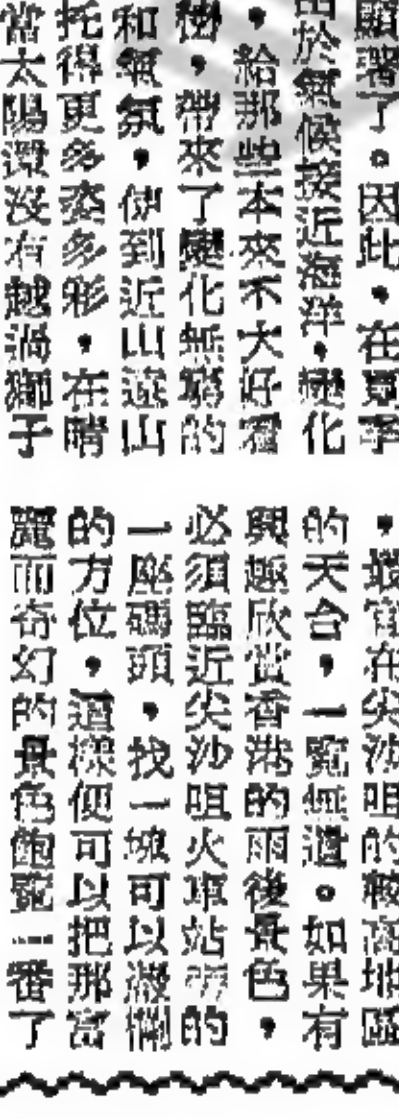 顯著了。因此,在夏季
由於氣候接近海洋,變化
,給那些本來不大好看
掛,帶來了變化無窮的
和氣氛,使到近山遠山
托得更多姿多彩,在晴
當太陽還沒有越過獅子
,最宜在尖沙咀的較高地區
的天台,一覽無遺。如果有
興趣欣賞香港的雨後景色,
必須臨近尖沙咀火車站旁的
一座碼頭,找一塊可以瀏
的方位,這樣便可以把那富
麗而奇幻的景色飽覽一番了